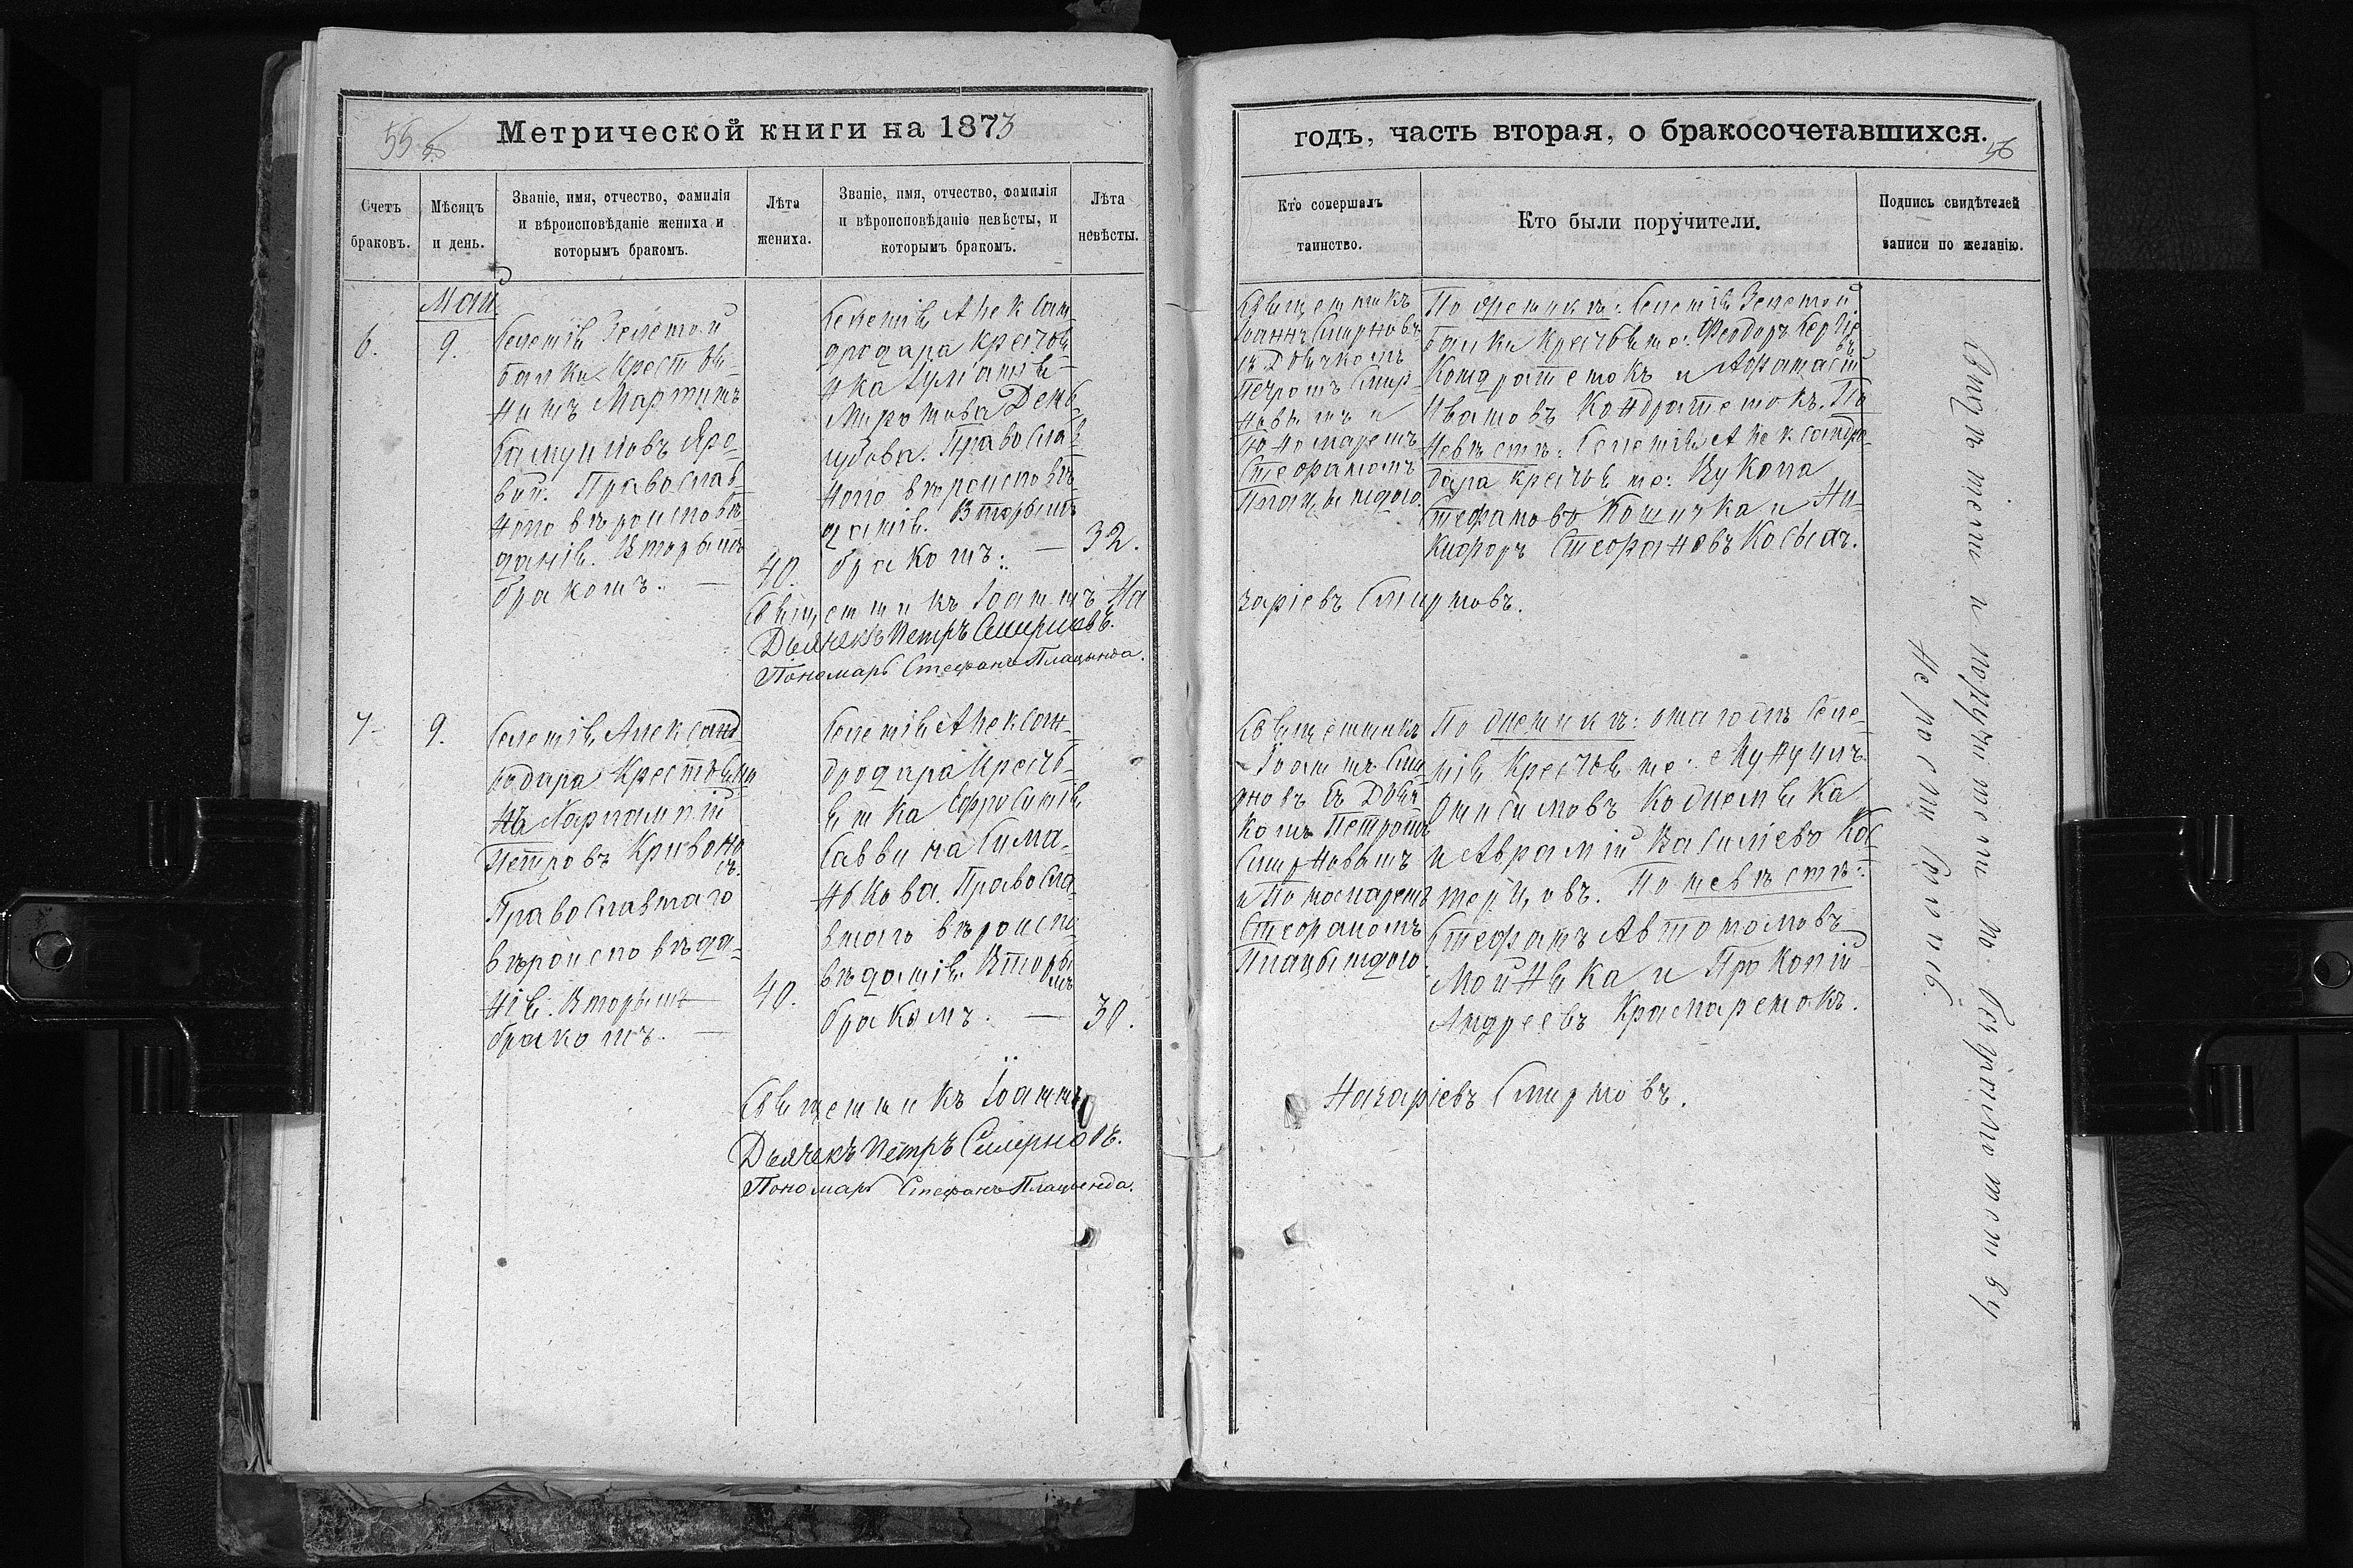 55
Метрической книги на 1873
Счетъ браковъ.
Мѣсяцъ и день.
Званіе, имя, отчество, фамилія и вѣроисповѣданіе жениха и которымъ бракомъ.
Лѣта жениха.
Званіе, имя, отчество, фамилія и вѣроисповѣданіе невѣсты, и которымъ бракомъ.
Лѣта невѣсты.
Май
6.
9.
Селенія Зеленой
балки Крестья-
нинъ Мартинъ
Самуиловъ Яро-
вый. Православ-
наго вѣроисповѣ-
данія. Вторымъ
бракомъ. —
40.
Селенія Алексан-
дродара крестья-
нка
Миронова
Православ-
наго вѣроисповѣ-
данія. Вторымъ
бракомъ. —
32.
Священникъ Іоаннъ На
Дьячекъ Петръ Смирновъ.
Пономарь Стефанъ Плацында.
7
9.
Селенія Александ-
родара Крестьяни
нъ Харлампій
Петровъ Кривоно
съ.
Православнаго
вѣроисповѣда-
нія. Вторымъ
бракомъ. —
40.
Селенія Алексан-
дродара Кресть-
янка Ефросинія
Саввина Сима-
нокова. Правосла-
внаго вѣроиспо-
вѣданія. Вторы
мъ
бракомъ. —
30.
Священникъ Іоаннъ
Дьячекъ Петръ Смирновъ.
Пономарь Стефанъ Плацында.
годъ, часть вторая, о бракосочетавшихся.
56
Кто совершалъ таинство.
Кто были поручители.
Подпись свидѣтелей записи по желанію.
Священникъ
Іоаннъ Смирновъ
съ Дьячкомъ
Петромъ Смир-
новымъ и
Пономаремъ
Стефаномъ
Плацындою.
По женихѣ: Селенія Зеленой
балки Крестьяне: Феодоръ Сергіе
въ
Кондратенокъ и Афанасій
Ивановъ Кондратенокъ. По
невѣстѣ: Селенія Алексндро-
дара крестьяне: Вукола
Стефановъ Кошичка и Ни-
кифоръ Стефановъ Косыхъ.
заріевъ Смирновъ.
Священникъ
Іоаннъ Сми
рновъ съ Дьяч
комъ Петромъ
Смирновымъ
и Пономаремъ
Стефаномъ
Плацындою
По женихѣ: онагожъ Селе-
нія Крестьяне:
Онисимовъ
и Аврамій Василіевъ
По невѣстѣ:
Стефанъ Автономовъ
и Прокопій
Андреевъ Крамаренокъ.
Назаріевъ Смирновъ.